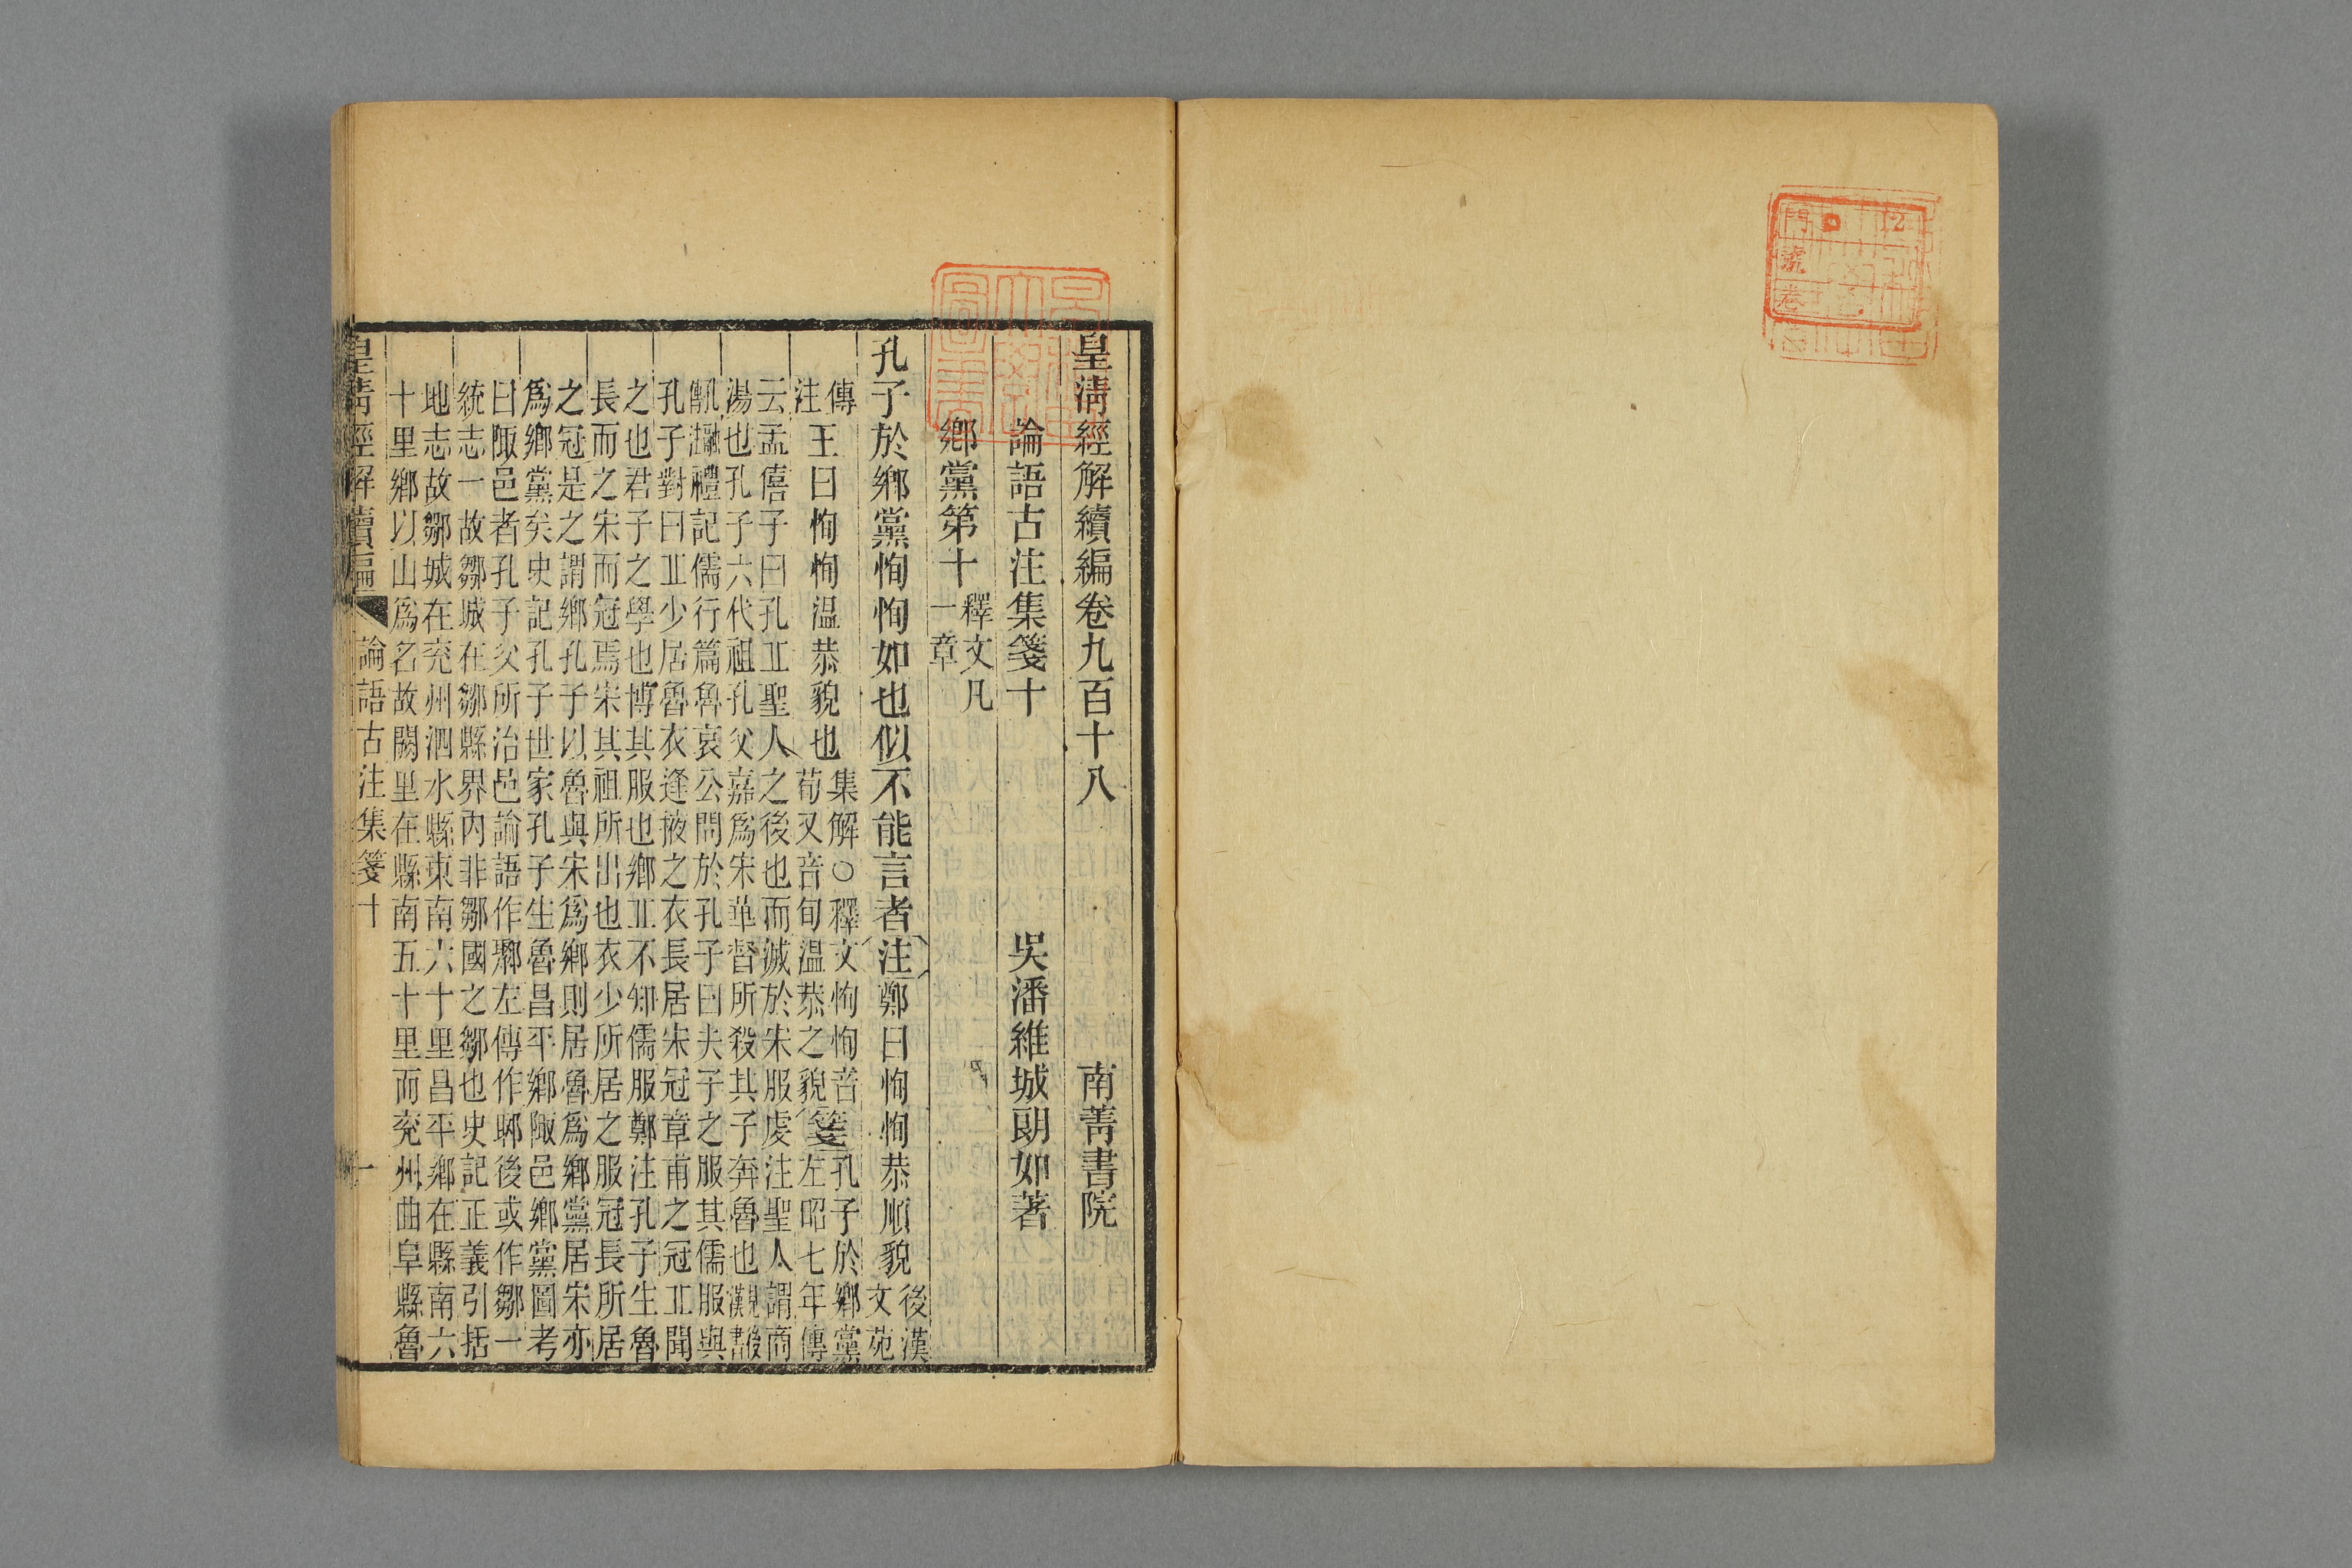 皇清經解續編卷九百十八　南菁書院
論語古注集箋十　吳潘維城朗如著
鄉黨第十 釋文凡
一章
孔子於鄉黨恂恂如也似不能言者注鄭曰恂恂恭順貌 後漢
文苑
傳
注
王曰恂恂温恭貌也 集解○釋文恂恂音
荀又音旬温恭之貌
箋 孔子於鄉黨
左昭七年傳
云孟僖子曰孔丘聖人之後也而滅於宋服虔注聖人謂商
湯也孔子六代祖孔父嘉爲宋華督所殺其子奔魯也
禮記儒行篇魯哀公問於孔子曰夫子之服其儒服與
孔子對曰丘少居魯衣逢掖之衣長居宋冠章甫之冠丘聞
之也君子之學也博其服也鄉丘不知儒服鄭注孔子生魯
長而之宋而冠焉宋其祖所出也衣少所居之服冠長所居
之冠是之謂鄉孔子以魯與宋爲鄉則居魯爲鄉黨居宋亦
爲鄉黨矣史記孔子世家孔子生魯昌平鄉陬邑鄉黨圖考
曰陬邑者孔子父所治邑論語作鄹左傳作郰後或作鄒一
統志一故鄒城在鄒縣界內非鄒國之鄒也史記正義引括
地志故鄒城在兗州泗水縣東南六十里昌平鄉在縣南六
十里鄉以山爲名故闕里在縣南五十里而兗州曲阜縣魯
皇清經解續編　論語古注集箋十　一
門
號
卷